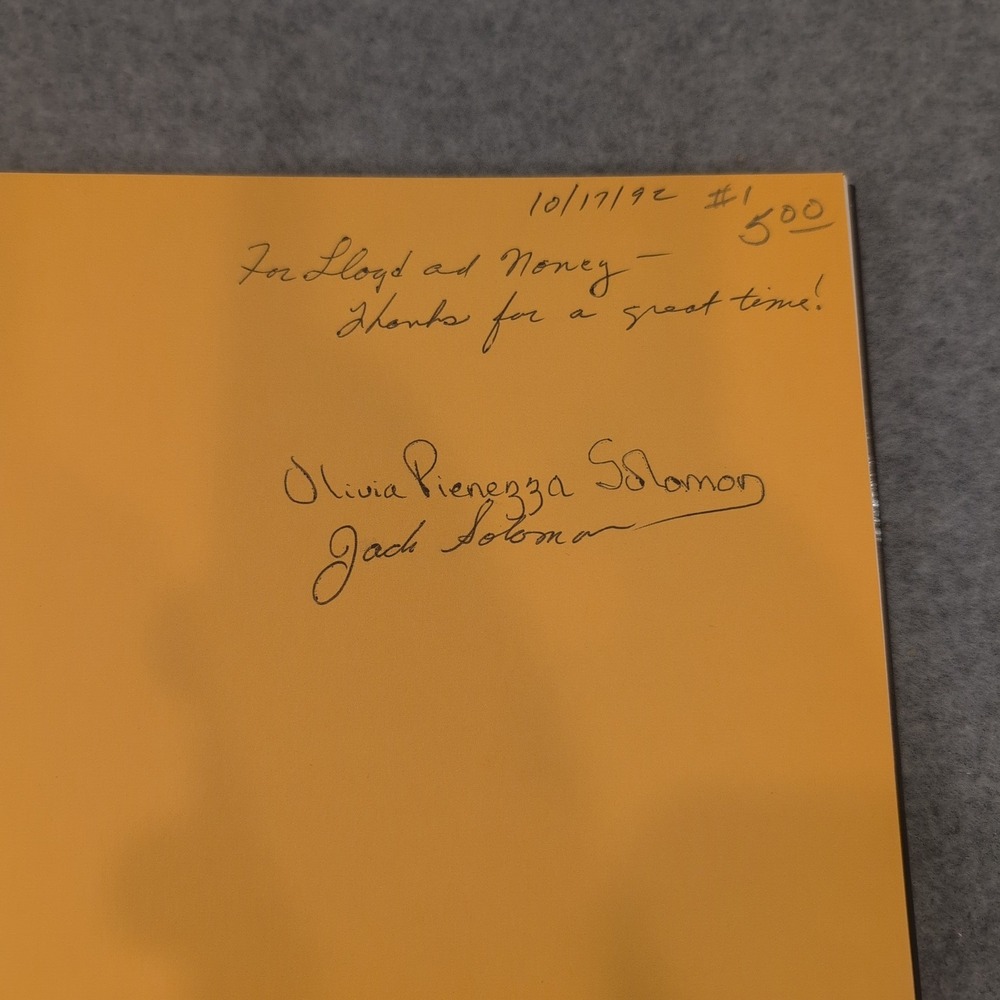 10/17/92 #1
5 00
For Lloyd ad Noncy —
Thanks for a great time!
Olivia Pienezza Solomon
Jack Solomon